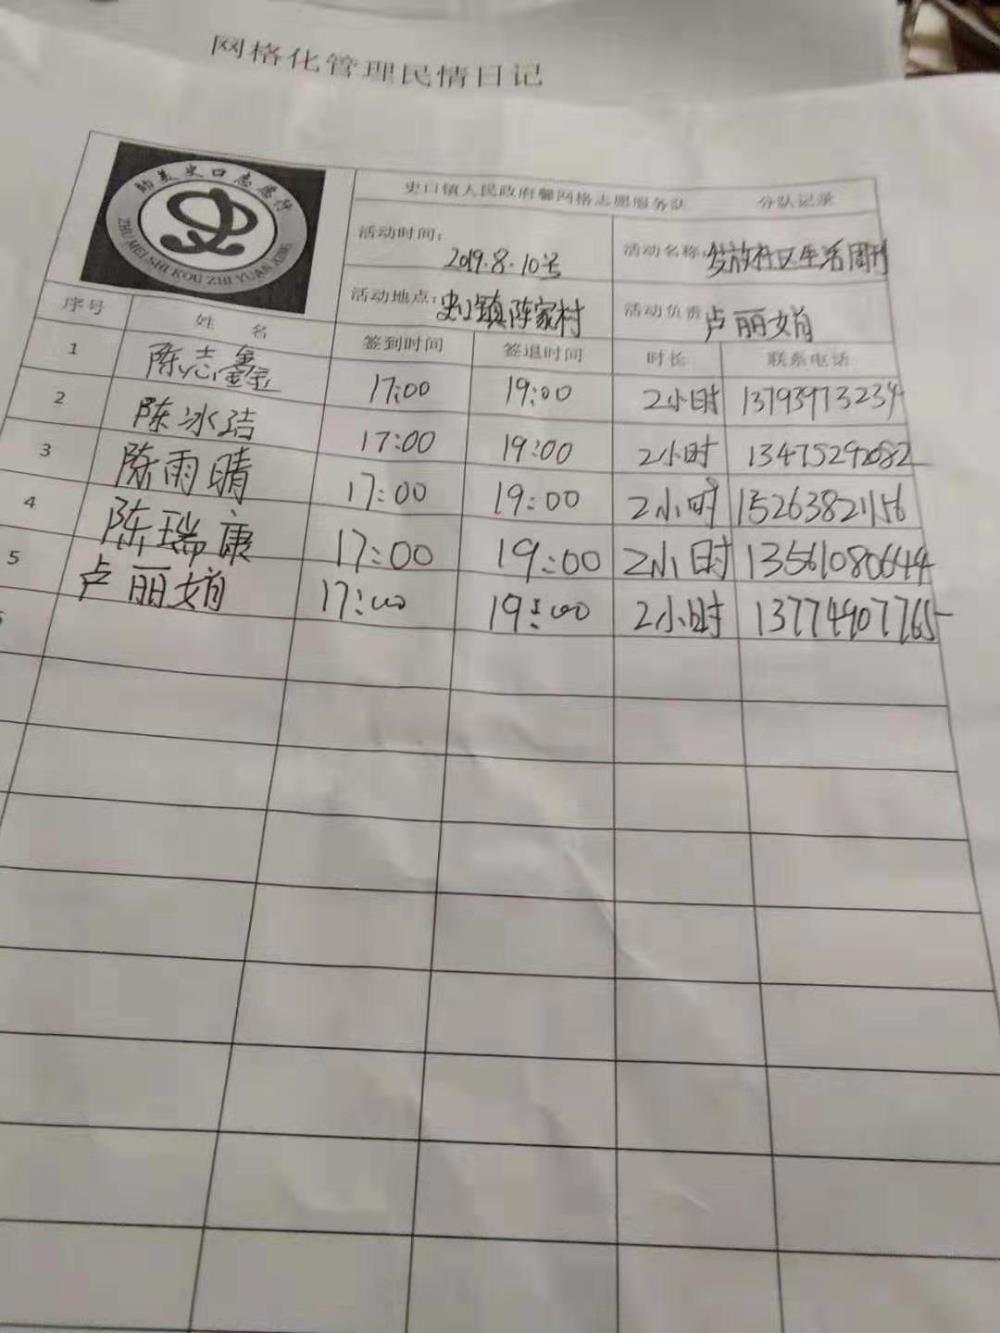 网格化管理民情日记
助美史口志愿行
ZHU MEI SHI KOU ZHI YUAN XING
史口镇人民政府馨网格志愿服务队 分队记录
活动时间: 2019.8.10号 活动名称: 发放社区生活周刊
活动地点: 史口镇陈家村 活动负责 卢丽娟
序号 姓名 签到时间 签退时间 时长 联系电话
1 陈志鑫 17:00 19:00 2小时 13793973234
2 陈冰洁 17:00 19:00 2小时 13475292082
3 陈雨晴 17:00 19:00 2小时 15263821156
4 陈瑞康 17:00 19:00 2小时 13561080644
5 卢丽娟 17:00 19:00 2小时 13774907765